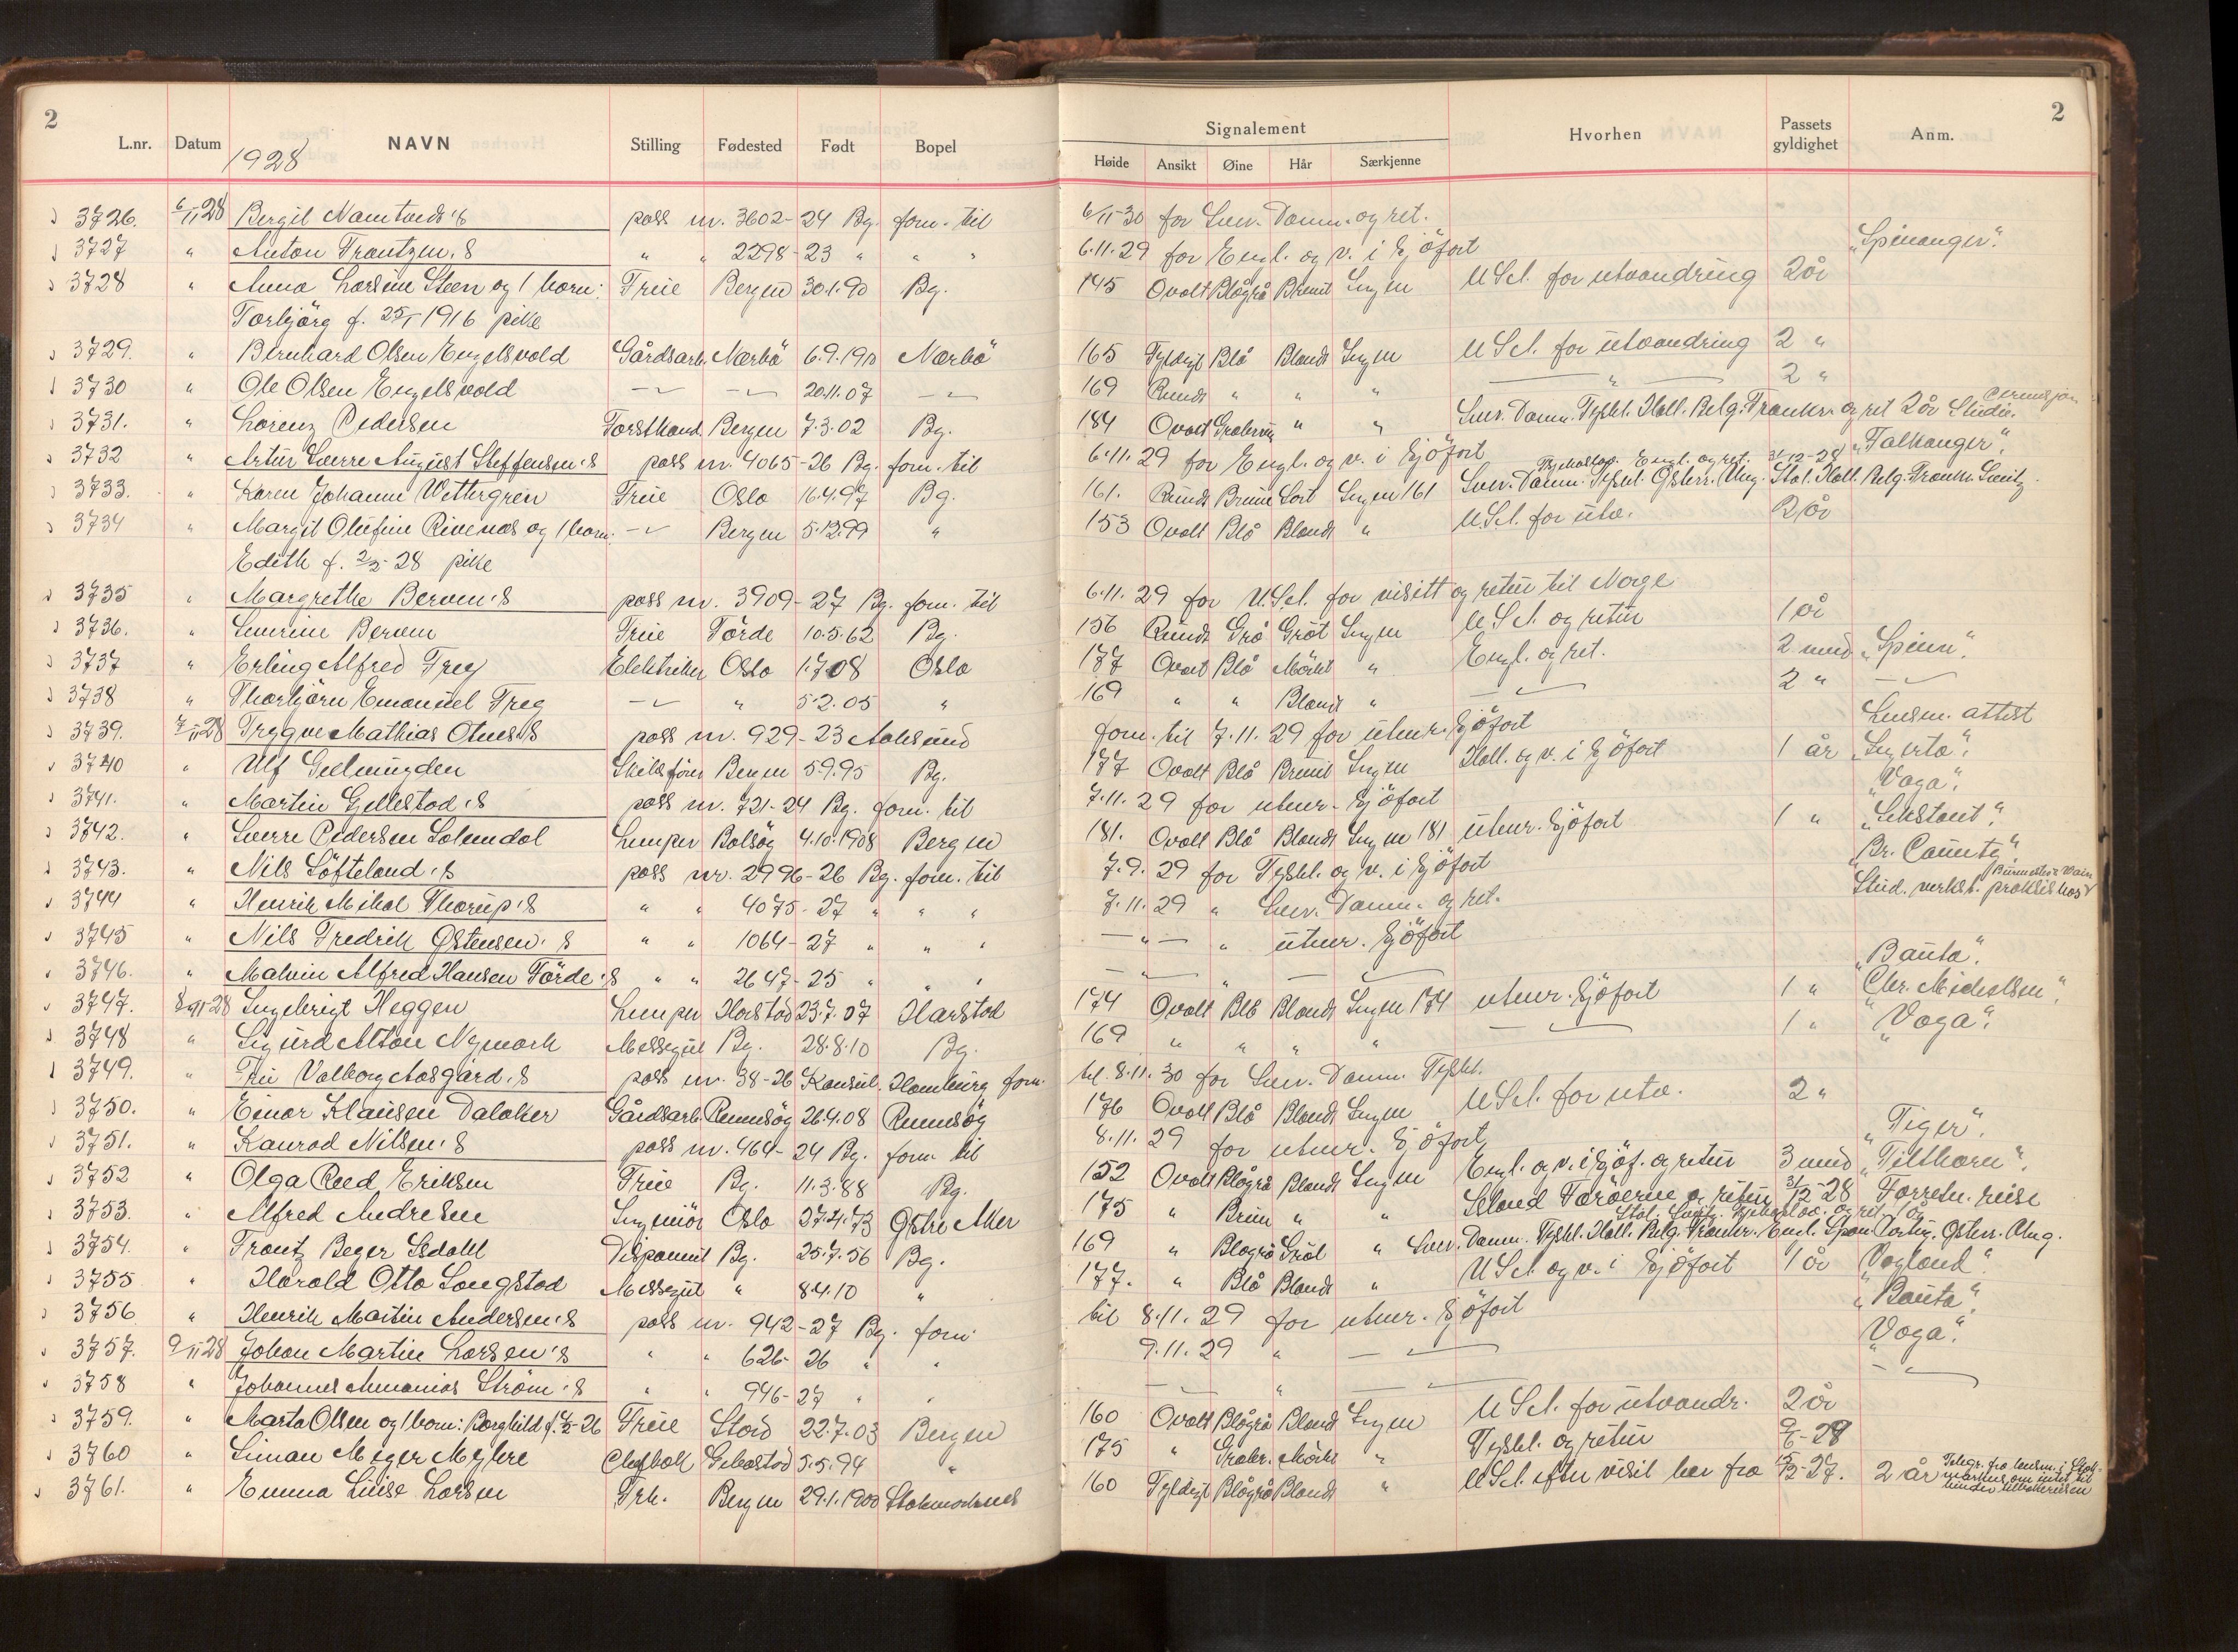 2
2
L.nr. Datum NAVN Stilling Fødested Født Bopel Signalement Hvorhen Passets gyldighet Anm.
1928
Høide Ansikt Øine Hår Særkjenne
3726. 6/11 28 Bergit pass nr. 3602-24 Bg. forn. til 6/11-30 for Sver. Danm. og ret.
3727 " Anton Frantzen's " " 2298-23 " " " 6.11.29 for Engl. og v. i Sjöfart "Spinanger".
3728 " Anna Larsine Steen og 1 barn: Frue Bergen 30.1.90 Bg. 145 Ovalt Blågrå Brunt Ingen U.S.A. for utvandring 2 år
Torbjörg f. 25/1 1916 pike
3729. " Bernhard Olsen Engelsvold Gårdsarb. Nærbö 6.9.1910 Nærbö 165 Fyldigt Blå Blondt Ingen U.S.A. for utvandring 2 "
3730 " Ole Olsen Engelsvold 20.11.07 169 Rundt " " " " 2 "
3731. " Lorenz Pedersen Forstkand. Bergen 7.3.02 Bg. 184 Ovalt Gråbrun " " Sver. Danm. Tyskl. Holl. Belg. Frankr. og ret 2 år Studie.
3732 " Artur Sverre August Steffensen's pass nr. 4065-26 Bg. forn. til 6.11.29 for Engl. og v. i Sjöfart "Falkanger".
Engl. og ret. 31-12-28
3733. " Karen Johanne Wettergren Frue Oslo 16.4.97 Bg. 161. Rundt Brune Sort Ingen 161 Sver. Danm. Tyskl. Østerr. Ung. Ital. Holl. Belg. Frankr. Sveitz.
3734 " Margit Olufine Rivenæs og 1 barn: Bergen 5.12.99 " 153 Ovalt Blå Blondt " U.S.A. for utv. 2 år
Edith f. 2/2-28 pike
3735 " Margrethe Berven's pass nr. 3909-27 Bg. forn. til 6.11.29 for U.S.A. for visitt og retur til Norge
3736. " Severine Berven Frue Förde 10.5.62 Bg. 156 Rundt Grå Gråt Ingen U.S.A. og retur 1 år
3737 " Erling Alfred Frey Elektriker Oslo 1.7.08 Oslo 177 Ovalt Blå Mörkt " Engl. og ret. 2 mnd "Spinn".
3738 " Thorbjörn Emanuel Frey " 5.2.05 " 169 " " Blondt " 2 "
3739. 7/11 28 Trygve Mathias Otnes's pass nr. 929-23 Aalesund forn. til 7.11.29 for utenr. Sjöfart Lensm. attest
3740 " Ulf Geelmuyden Skibsförer Bergen 5.9.95 Bg. 177 Ovalt Blå Brunt Ingen Holl. og v. i Sjöfart 1 år "Ingerto".
3741. " Martin Gjellestad's pass nr. 721-24 Bg. forn. til 7.11.29 for utenr. Sjöfart "Vaga".
3742. " Sverre Pedersen Solemdal Lemper Bolsöy 4.10.1908 Bergen 181. Ovalt Blå Blondt Ingen 181 utenr. Sjöfart 1 " "Sekstant".
3743. " Nils Söfteland's pass nr. 2996-26 Bg. forn. til 7.9.29 for Tyskl. og v. i Sjöfart "Br. County".
3744 " Henrik Mikal Thorup's " " 4075-27 " " " 7.11.29 " Sver. Danm. og ret. Stud. verkst. praksis hos
3745 " Nils Fredrik Østensen's " " 1064-27 " " " " " utenr. Sjöfart
3746. " Malvin Alfred Hansen Förde's " " 2647-25 " " " " "Bauta".
3747. 8/11 28 Ingebrigt Heggen Lemper Harstad 23.7.07 Harstad 174 Ovalt Blå Blondt Ingen 174 utenr. Sjöfart 1 " "Chr. Michelsen".
3748 " Sigurd Alton Nymark Messegut Bg. 28.8.10 Bg. 169 " " " " 1 " "Vaga".
3749. " Fru Valborg Aasgård's pass nr. 38-26 Konsul. Hamburg forn. til 8.11.30 for Sver. Danm. Tyskl.
3750. " Einar Klausen Daløker Gårdsarb. Rennesöy 26.4.08 Rennesöy 176 Ovalt Blå Blondt Ingen U.S.A. for utv. 2 "
3751. " Konrad Nilsen's pass nr. 464-24 Bg. forn. til 8.11.29 for utenr. Sjöfart "Tiger".
3752 " Olga Eriksen Frue Bg. 11.3.88 Bg. 152 Ovalt Blågrå Blondt Ingen Engl. og v. i Sjöf. og retur 3 mnd "Tilthorn".
3753. " Alfred Andresen Ingeniör Oslo 27.4.73 Östre Aker 175 " Brun " " Island Færöerne og retur 31/12-28 Forretn. reise
3754. " Frantz Beyer Isdahl Disponent Bg. 25.7.56 Bg. 169 " Blågrå Gråt " Sver. Danm. Tyskl. Holl. Belg. Frankr. Engl. Span. Portug. Østerr. Ung.
3755 " Harald Otto Langstad Messegut " 8.4.10 " 177. " Blå Blondt " U.S.A. og v. i Sjöfart 1 år "Vogland".
3756. " Henrik Martin Andersen's pass nr. 942-27 Bg. forn. til 8.11.29 for utenr. Sjöfart "Bauta".
3757. 9/11 28 Johan Martin Larsen's " " 626-26 " " 9.11.29 " "Vaga".
3758 " Johannes Ananias Ström's " " 946-27 " " "
3759. " Marta Olsen og 1 barn: Borghild Frue Stord 22.7.03 Bergen 160 Ovalt Blågrå Blondt Ingen U.S.A. for utvandr. 2 år
3760 " Simon Meyer Myhre 5.5.94 " 175 " Gråbr. Mörkt " Tyskl. og retur
3761. " Emma Luise Larsen Frk. Bergen 29.1.1900 Stokmarknes 160 Fyldigt Blågrå Blondt " U.S.A. efter visit her fra 2 år